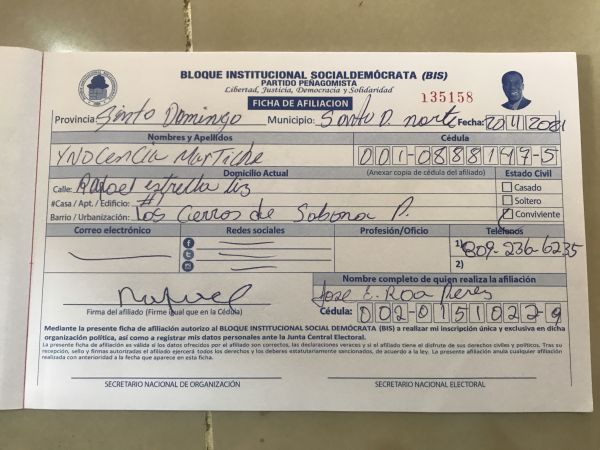 BLOQUE INSTITUCIONAL SOCIALDEMÓCRATA (BIS)
PARTIDO PEÑAGOMISTA
Libertad, Justicia, Democracia y Solidaridad
FICHA DE AFILIACION
135158
Provincia: Santo Domingo Municipio: Santo D. norte Fecha:
Nombres y Apellidos Cédula
YNOCENCIA Martiche 001-0888147-5
Domicilio Actual (Anexar copia de cédula del afiliado) Estado Civil
Calle: Rafael estrella liz Casado
#Casa / Apt. / Edificio: Soltero
Barrio / Urbanización: Los Cierros de Sabana P. Conviviente
Correo electrónico Redes sociales Profesión/Oficio Teléfonos
1) 809-236-6235
2)
Nombre completo de quien realiza la afiliación
Jose E. Roa Peres
Firma del afiliado (Firme igual que en la Cédula) Cédula: 002-0151022-9
Mediante la presente ficha de afiliación autorizo al BLOQUE INSTITUCIONAL SOCIAL DEMÓCRATA (BIS) a realizar mi inscripción única y exclusiva en dicha
organización política, así como a registrar mis datos personales ante la Junta Central Electoral.
La presente ficha de afiliación es válida si los datos ofrecidos por el afiliado son correctos, las declaraciones veraces y si el afiliado tiene el disfrute de sus derechos civiles y políticos. Tras su
recepción, sello y firmas autorizadas el afiliado ejercerá todos los derechos y los deberes estatutariamente sancionados, de acuerdo a la ley. La presente afiliación anula cualquier afiliación
realizada con anterioridad a la fecha que aparece en esta ficha.
SECRETARIO NACIONAL DE ORGANIZACIÓN SECRETARIO NACIONAL ELECTORAL